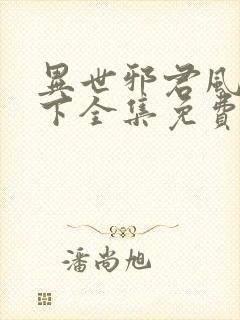 異世邪君風
下全集免費
潘尚旭